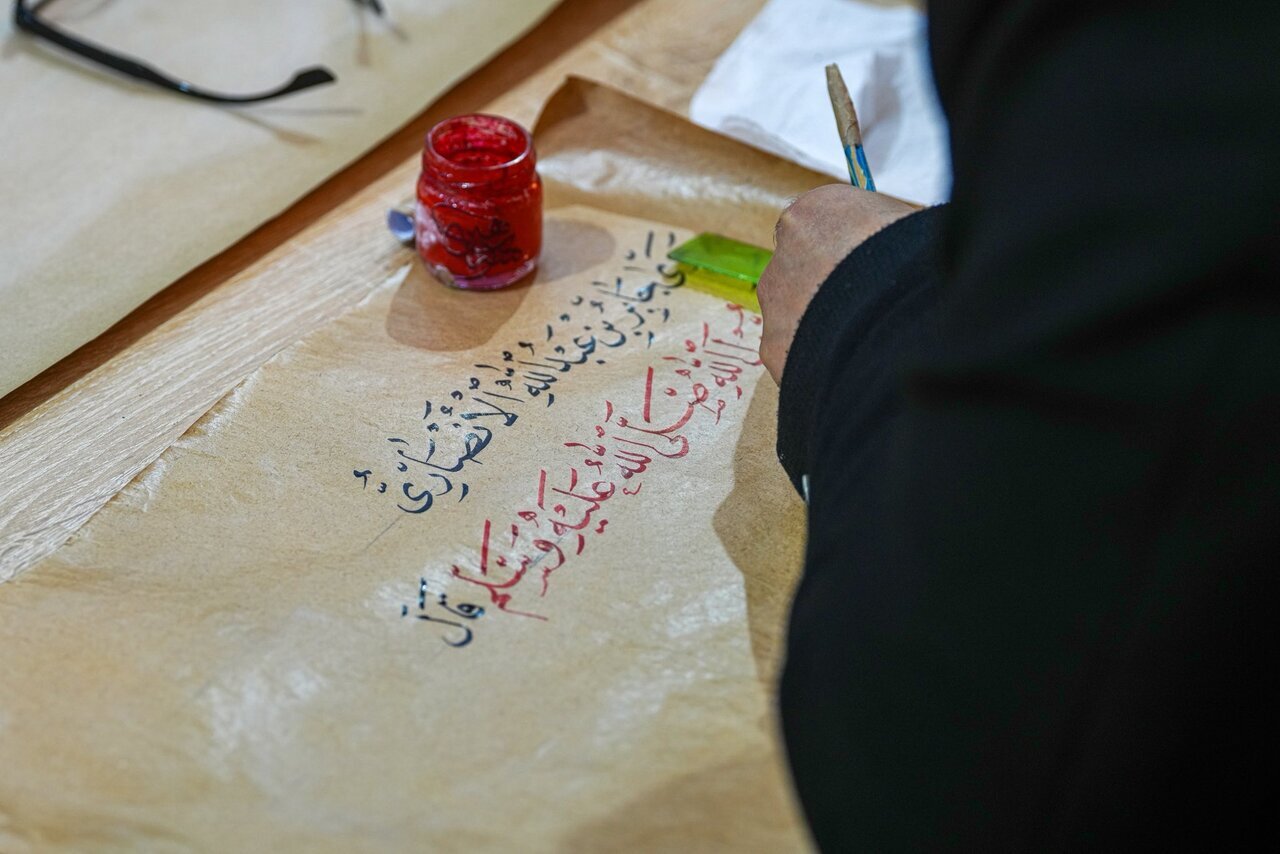 جَابِرِ بْنِ عَبْدِ اللهِ الْأَنْصَارِيِّ
اللهِ صَلَّى اللهُ عَلَيْهِ وَسَلَّمَ قَالَ